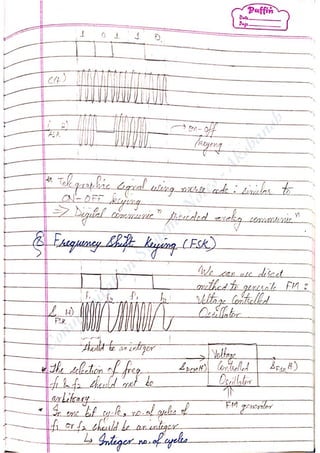 Puffin
Date
Page
1 0 1 1 0
c(t)
→ on-off
keying
* Telegraphic signal using morse code : similar to
ON-OFF keying
=> Digital commune^n preceded analog commune^n
② Frequency Shift Keying (FSK)
We can use direct
method to generate FM :
Voltage Controlled
Oscillator
f1 f2 f1 f2
S (t)
FSK
should be an integer
* The selection of freq.
f1 & f2 should not be
arbitrary
Voltage
Controlled
Oscillator
FM generator
* In one bit cycle, no. of cycles of
f1 or f2 should be an integer
↳ Integer no. of cycles